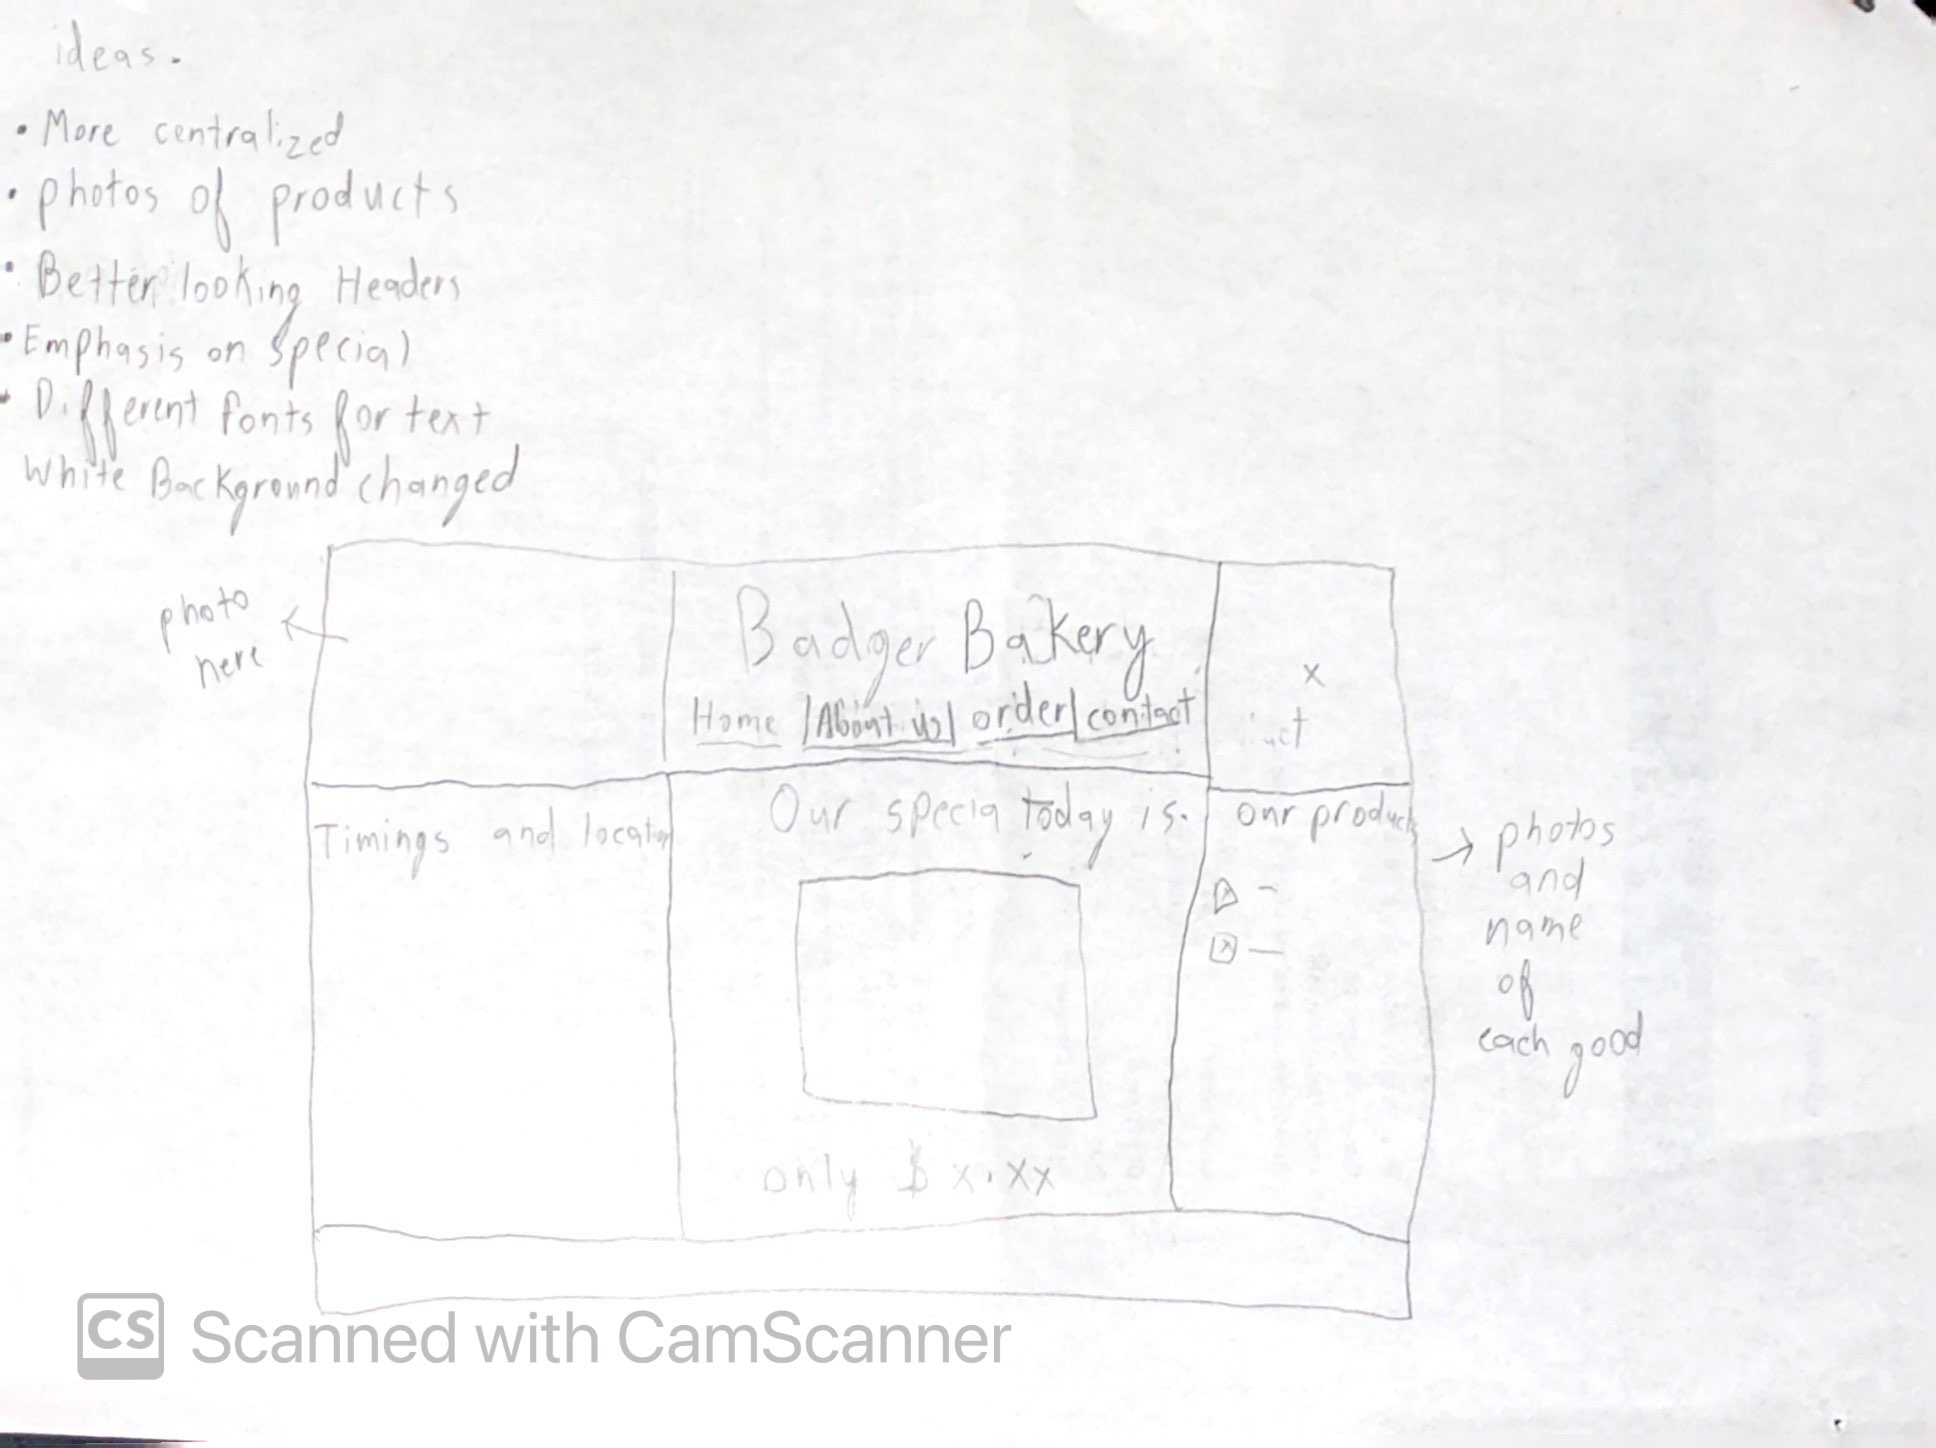 ideas.
• More centralized
• photos of products
• Better looking Headers
• Emphasis on special
• Different fonts for text
White Background changed
photo
here
Badger Bakery
Home | About us | order | contact
x
Timings and location
Our specia today is.
our product
photos
and
name
of
each good
only $ x.xx
CS Scanned with CamScanner